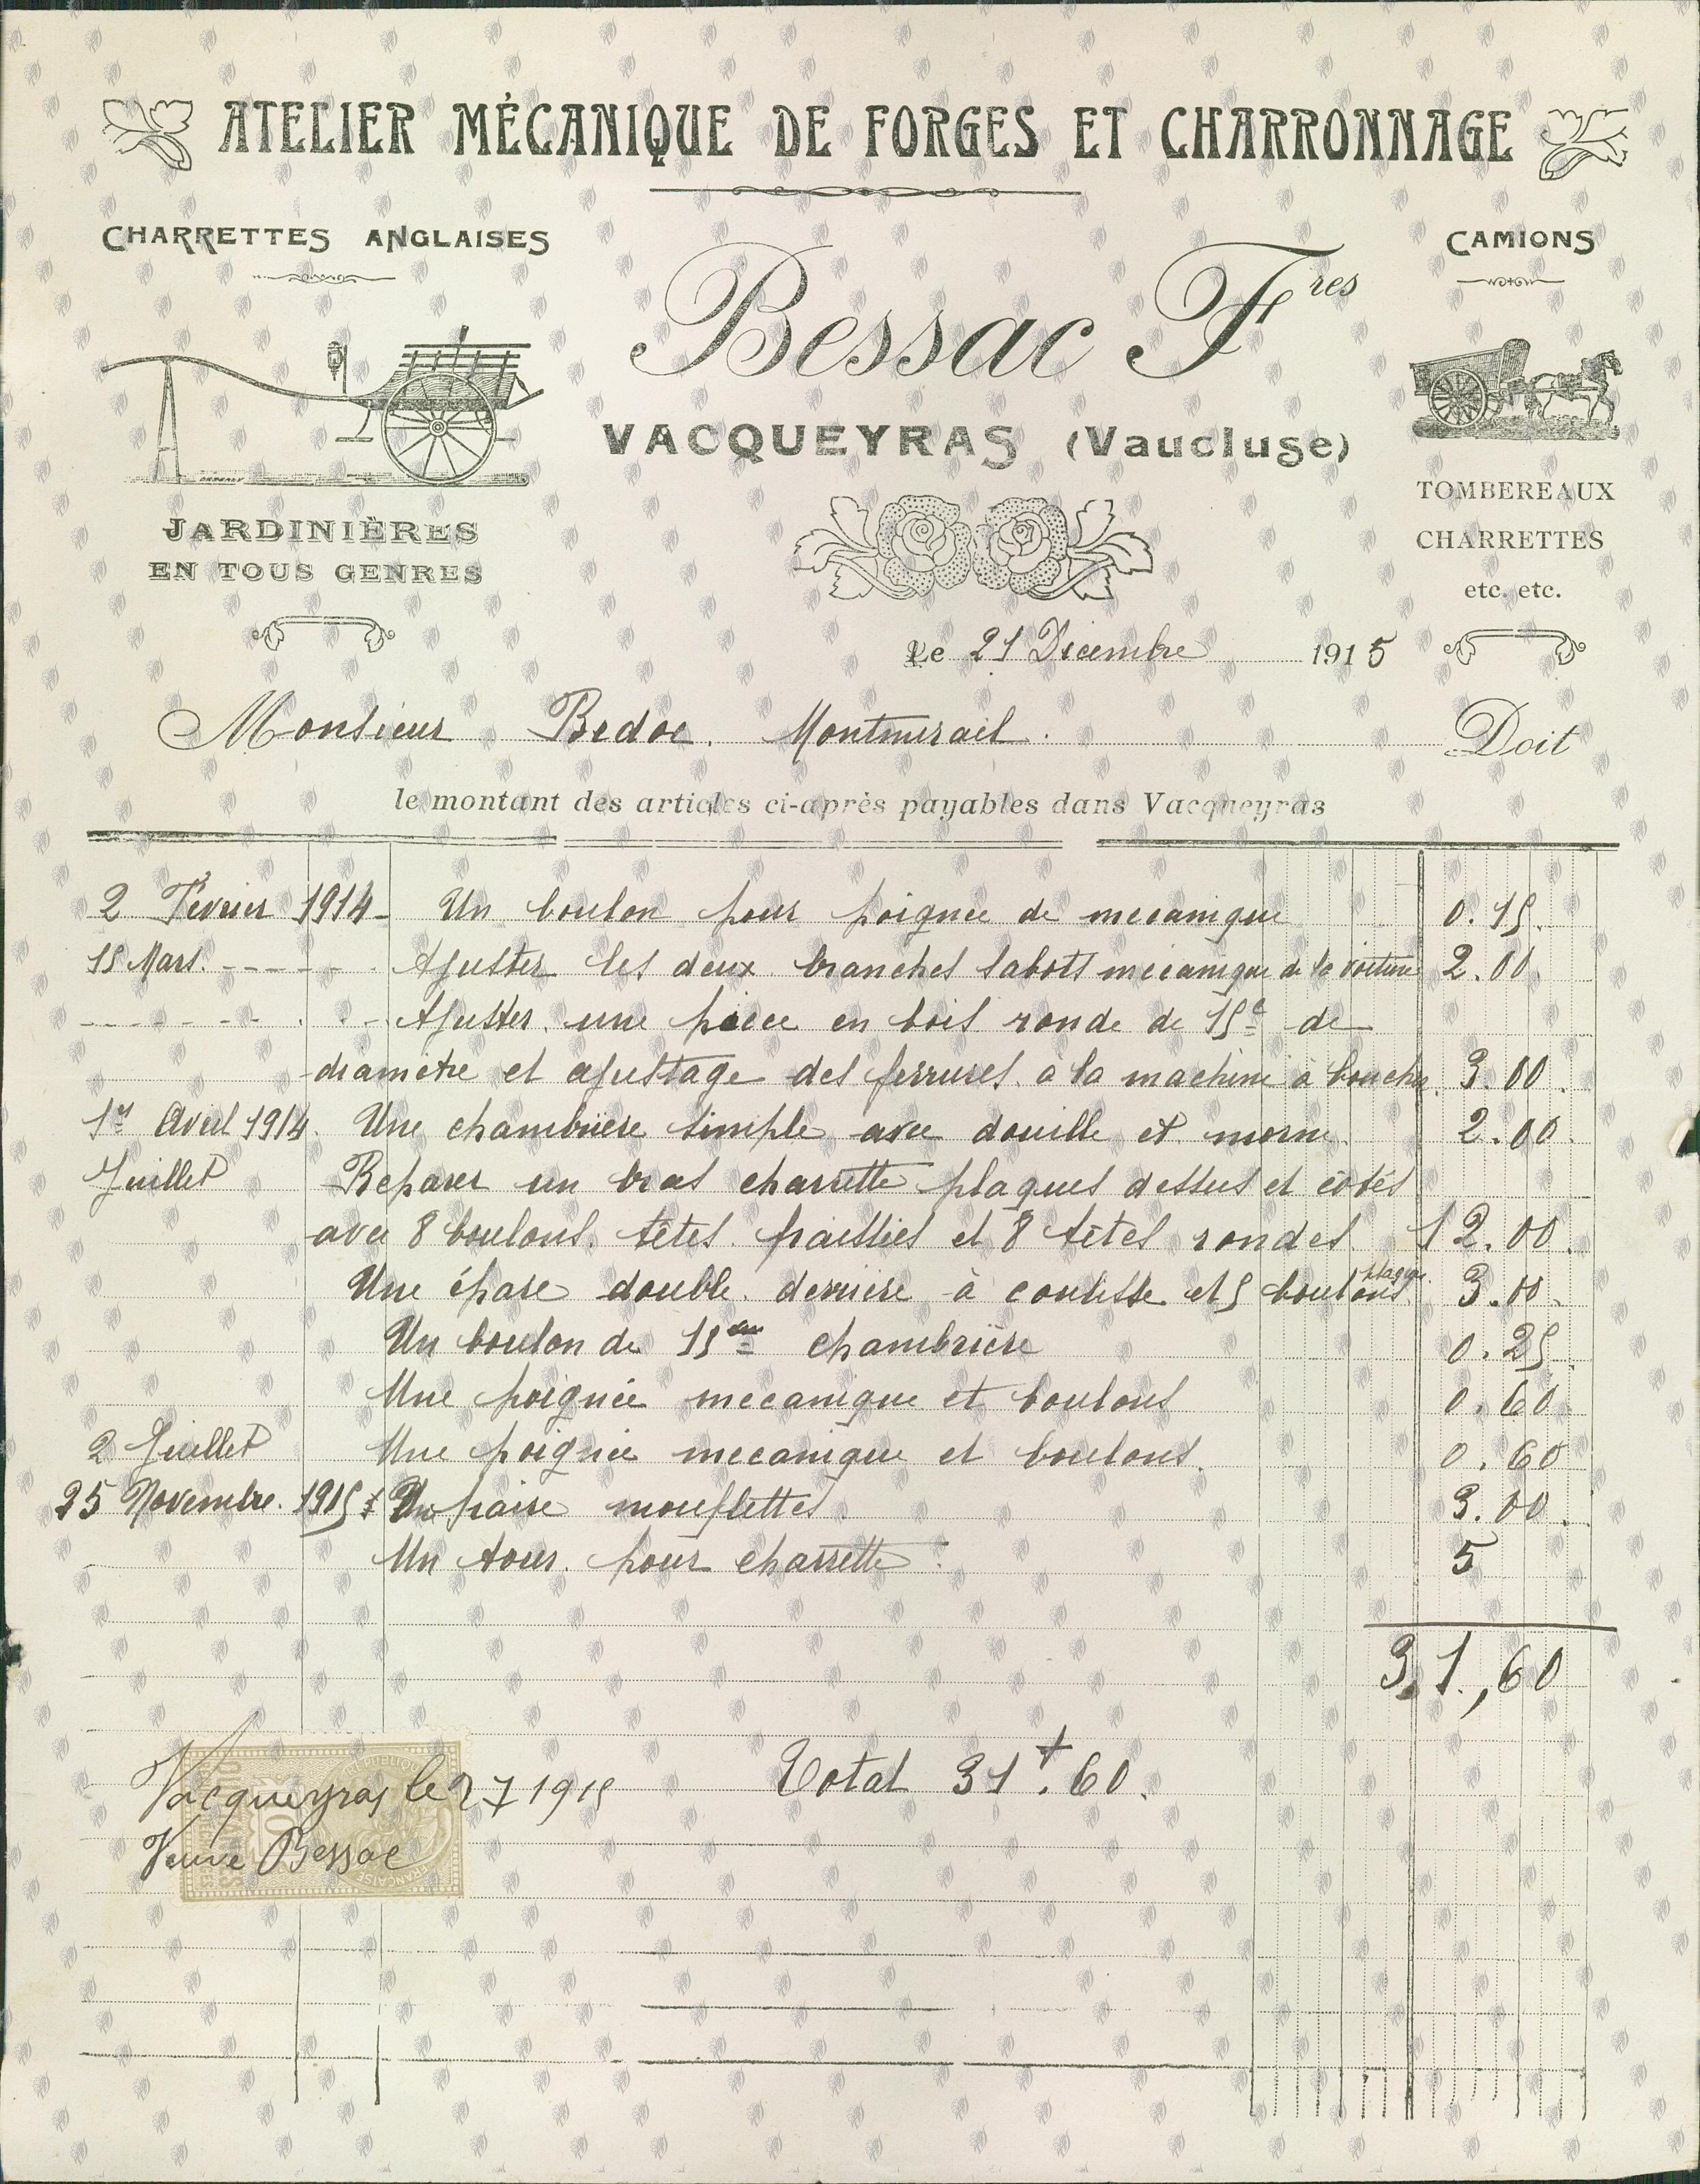 ATELIER MÉCANIQUE DE FORGES ET CHARRONNAGE
CHARRETTES ANGLAISES
CAMIONS
Bessac Fres
VACQUEYRAS (Vaucluse)
JARDINIÈRES
EN TOUS GENRES
TOMBEREAUX
CHARRETTES
etc. etc.
Le 21 Décembre 1915
Monsieur Bedoc. Montmirail. Doit
le montant des articles ci-après payables dans Vacqueyras
2 Fevrier 1914 Un boulon pour poignee de mecanique 0.15.
15 Mars. Ajuster les deux branches sabots mécanique de la voiture 2.00.
Ajuster une pièce en bois ronde de 15c de
diamètre et ajustage des ferrures à la machine à boucher 3.00.
1er Avril 1914. Une chambrière simple avec douille et 2.00.
Juillet Reparer un bras charrette plaques dessus et côtés
avec 8 boulons. têtes. fraissées et 8 têtes rondes 12.00.
Une épare double derrière à coulisse et 5 boulons plaque. 3.00.
Un boulon de 15 chambrière 0.25.
Une poignée mecanique et boulons 0.60
2 Juillet Une poignée mecanique et boulons. 0.60
25 Novembre. 1915 Un paire mouflettes 3.00.
Un tour. pour charrette. 5
31,60
Total 31f.60.
Vacqueyras le 27 1915
Veuve Bessac